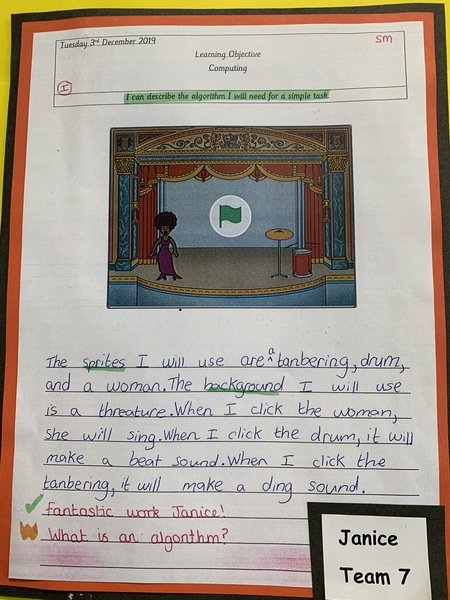 Tuesday 3rd December 2019
SM
Learning Objective
Computing
I
I can describe the algorithm I will need for a simple task
The sprites I will use are a tanbering, drum,
and a woman. The background I will use
is a threature. When I click the woman,
she will sing. When I click the drum, it will
make a beat sound. When I click the
tanbering, it will make a ding sound.
fantastic work Janice!
What is an algorithm?
Janice
Team 7